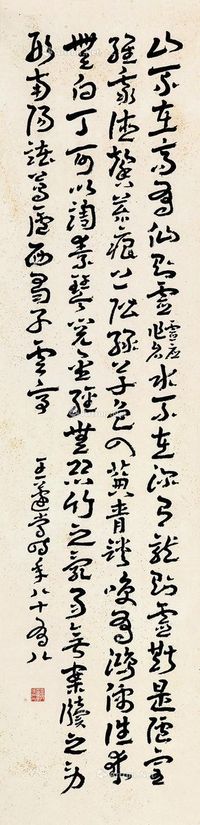 山不在高有仙則靈靈應作名水不在深有龍則靈斯是陋室
惟吾德馨苔痕上階綠草色入簾青談笑有鴻儒往來
無白丁可以調素琴閱金經無絲竹之亂耳無案牘之勞
形南陽諸葛廬西蜀子雲亭
王蘧常時年八十有八